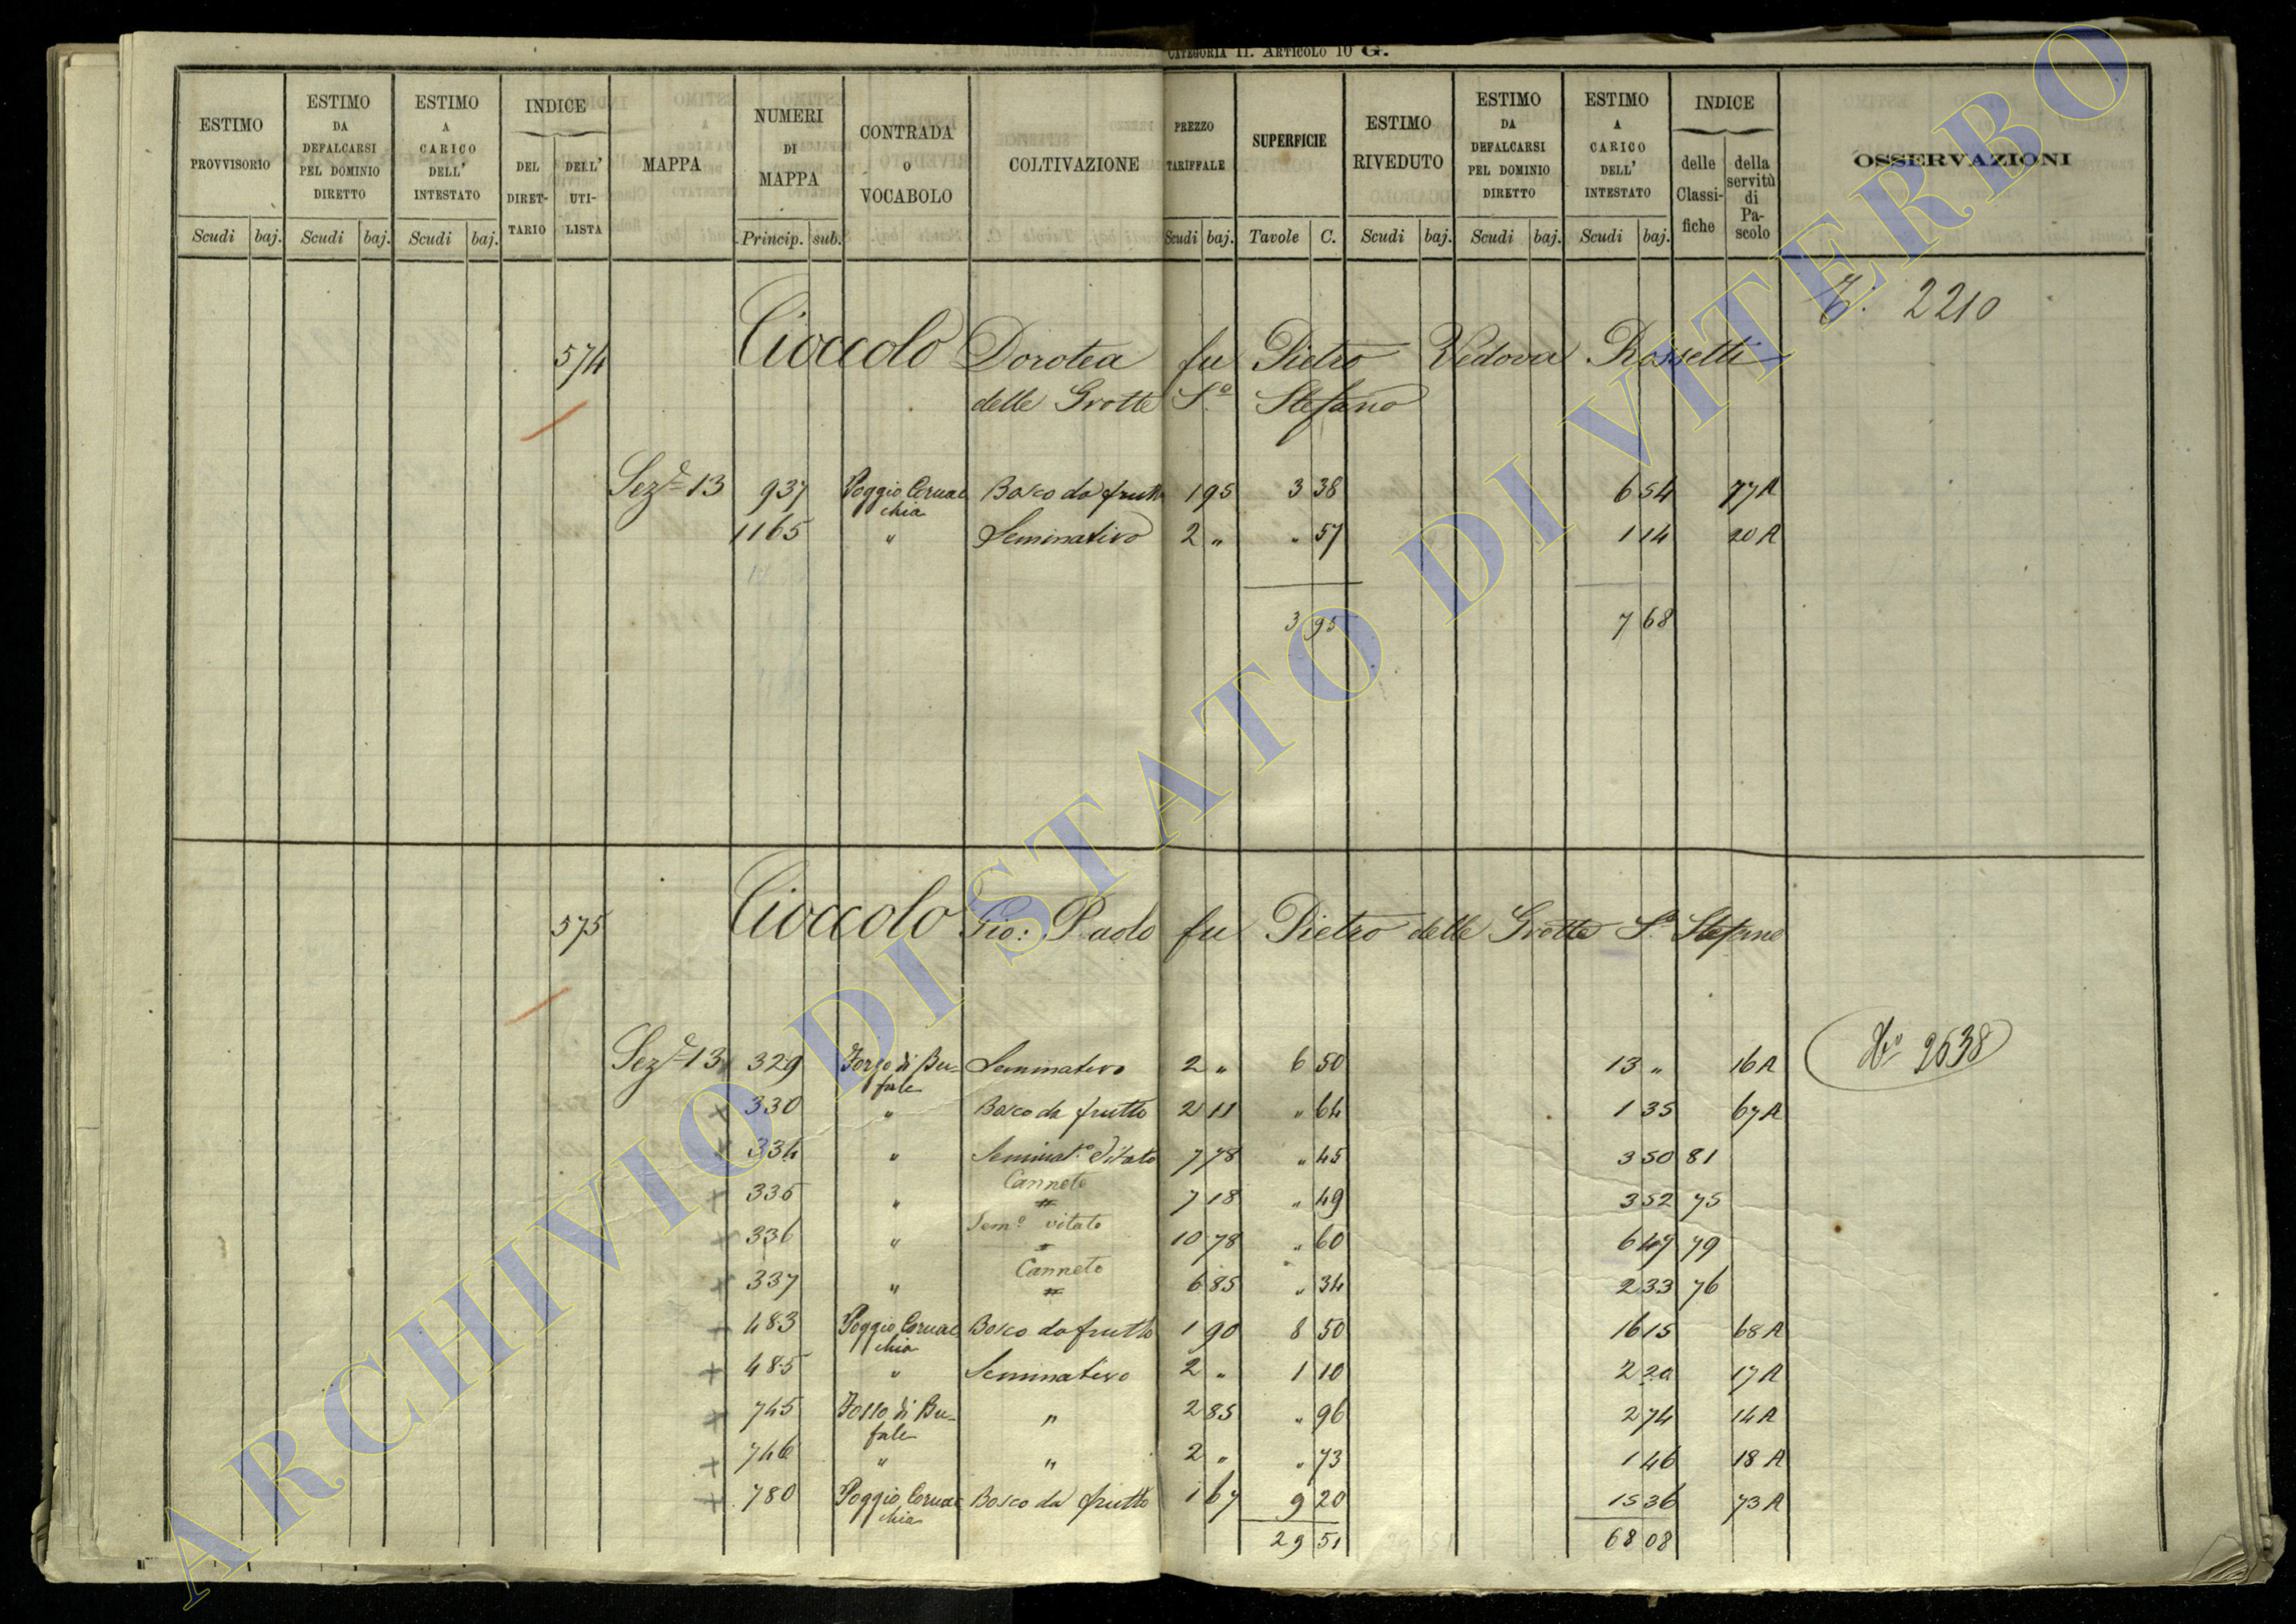 CATEGORIA II. ARTICOLO 10 G.
ESTIMO PROVVISORIO | ESTIMO DA DEFALCARSI PEL DOMINIO DIRETTO | ESTIMO A CARICO DELL' INTESTATO | INDICE DEL DIRET-TARIO | DELL' UTI-LISTA | MAPPA | NUMERI DI MAPPA | CONTRADA O VOCABOLO | COLTIVAZIONE | PREZZO TARIFFALE | SUPERFICIE | ESTIMO RIVEDUTO | ESTIMO DA DEFALCARSI PEL DOMINIO DIRETTO | ESTIMO A CARICO DELL' INTESTATO | INDICE delle Classi-fiche | della servitù di Pa-scolo | OSSERVAZIONI
Scudi baj. Scudi baj. Scudi baj. Princip. sub. Scudi baj. Tavole C. Scudi baj. Scudi baj. Scudi baj.
2210
574 Cioccolo Dorotea fu Pietro Vedova Rossetti
delle Grotte S.º Stefano
Sezᵉ 13 937 Poggio Cornac chia Bosco da frutto 1 95 3 38 6 54 77 A
1165 " Seminativo 2 " " 57 1 14 20 A
3 95 7 68
575 Cioccolo Gio: Paolo fu Pietro delle Grotte S. Stefano
Sezᵉ 13 329 Fosso di Bu- fale Seminativo 2 " 6 50 13 " 16 A Nº 2638
330 " Bosco da frutto 2 11 " 64 1 35 67 A
334 " Seminatº Vitato 7 78 " 45 3 50 81
335 " Canneto 7 18 " 49 3 52 75
336 " Semº vitato 10 78 " 60 6 47 79
337 " Canneto 6 85 " 34 2 33 76
483 Poggio Cornac chia Bosco da frutto 1 90 8 50 16 15 68 A
485 " Seminativo 2 " 1 10 2 20 17 A
745 Fosso di Bu- fale " 2 85 " 96 2 74 14 A
746 " " 2 " " 73 1 46 18 A
780 Poggio Cornac chia Bosco da frutto 1 67 9 20 15 36 73 A
29 51 68 08
ARCHIVIO DI STATO DI VITERBO